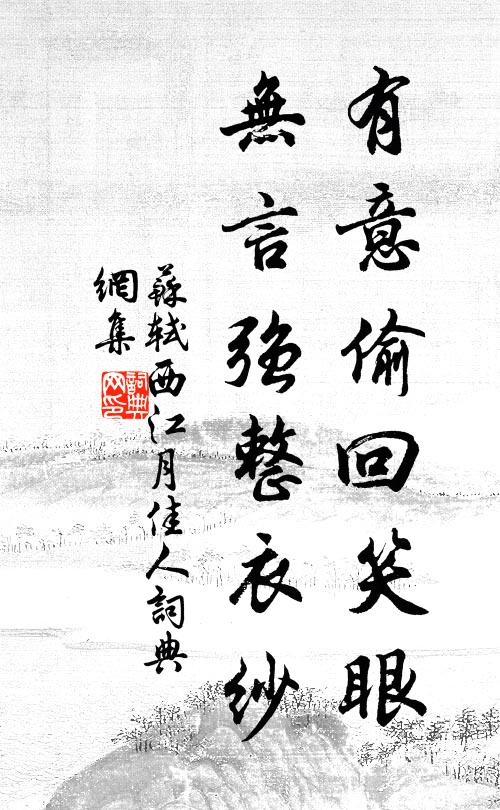 有意偷回笑眼
無言強整衣紗
蘇軾西江月佳人詞典
網集
詞典
网印